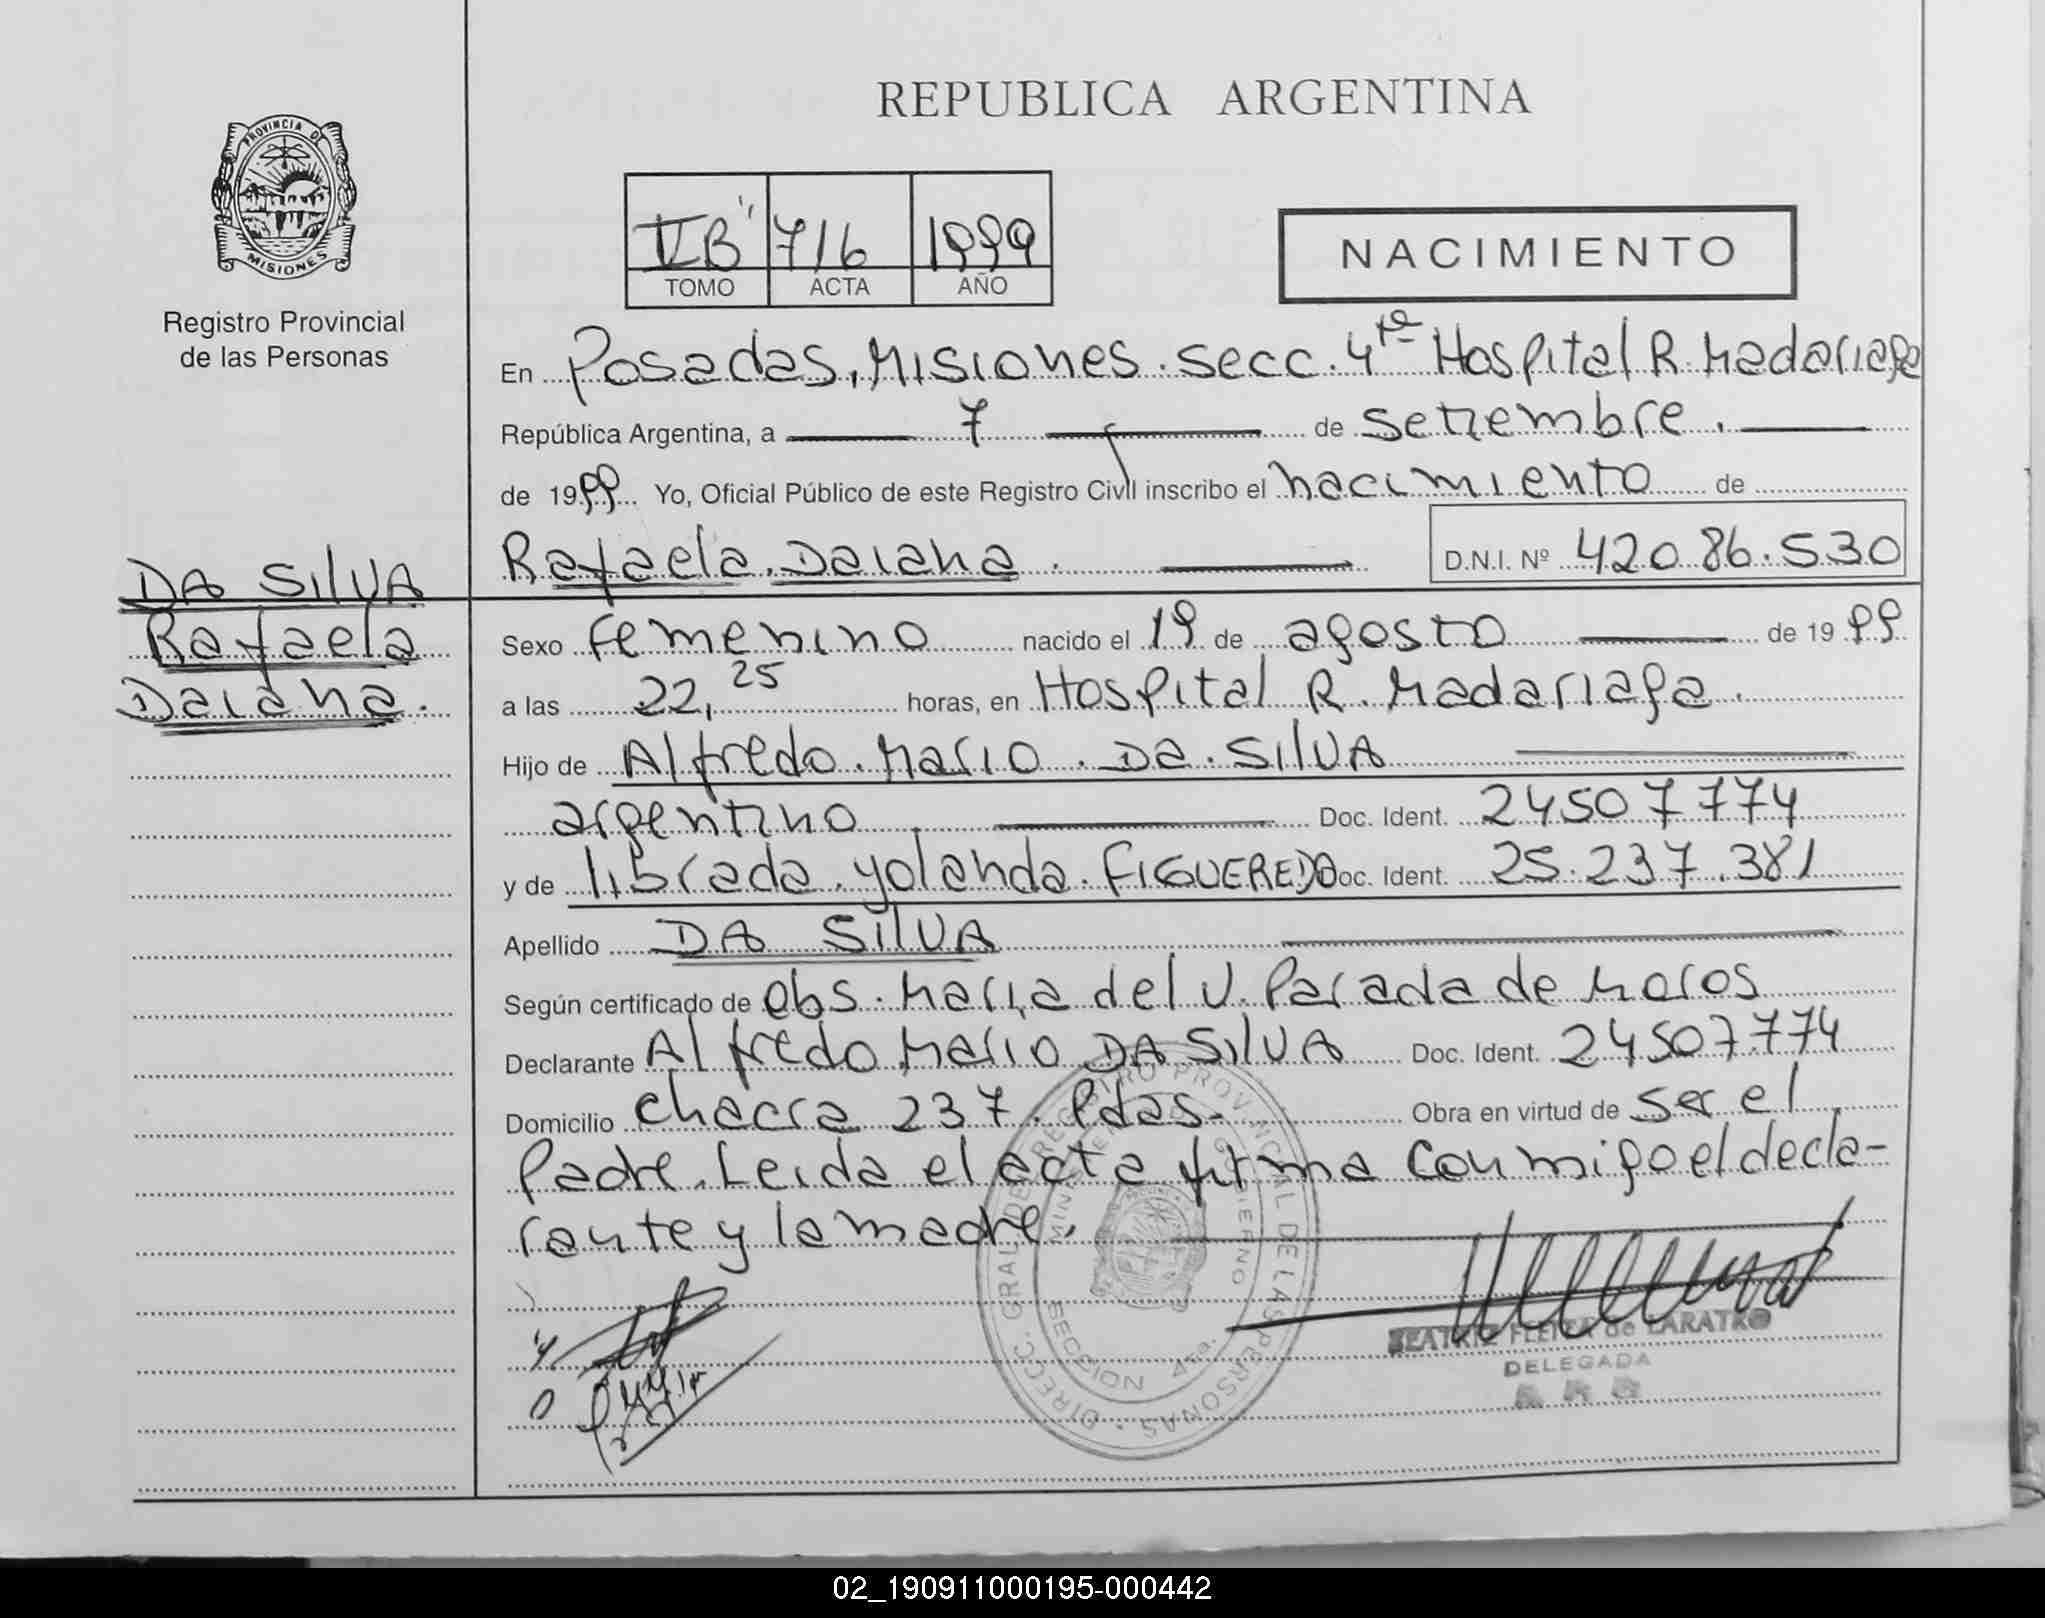 REPUBLICA ARGENTINA
PROVINCIA DE
MISIONES
Registro Provincial
de las Personas
B" 716 1999
TOMO ACTA AÑO
NACIMIENTO
En Posadas, Misiones. secc. 4ta Hospital R. Madariaga
República Argentina, a 7 de setiembre.
de 1999 Yo, Oficial Público de este Registro Civil inscribo el nacimiento de
Rafaela Daiana. D.N.I. Nº 42086.530
DA SilVA
Rafaela
Daiana.
Sexo femenino nacido el 19 de agosto de 1999
a las 22,25 horas, en Hospital R. Madariaga.
Hijo de Alfredo Mario Da SilVA
argentino Doc. Ident. 24507774
y de librada yolanda FIGUEREDO Doc. Ident. 25.237.381
Apellido DA SilVA
Según certificado de obs. Maria del V. Parada de Moros
Declarante Alfredo Mario DA SilVA Doc. Ident. 24507774
Domicilio chacra 237. Pdas. Obra en virtud de ser el
Padre. Leida el acta firma con migo el decla-
rante y la madre.
DIRECC. GRAL. DEL REGISTRO PROVINCIAL DE LAS PERSONAS
MINISTERIO DE GOBIERNO
SECCION 4ta.
BEATRIZ de LARATRO
DELEGADA
02_190911000195-000442